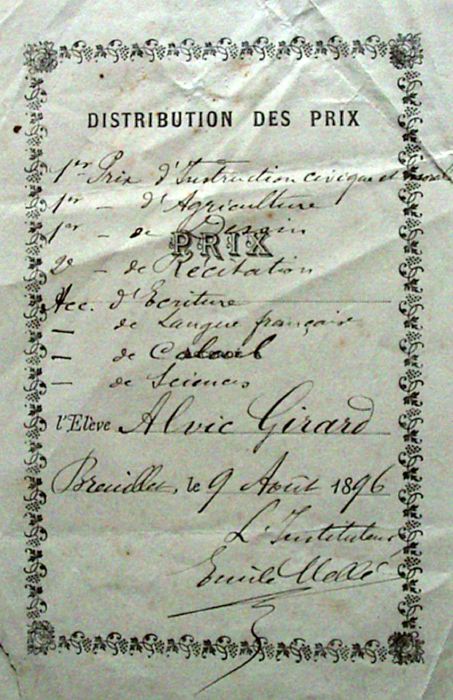 DISTRIBUTION DES PRIX
1er Prix d'Instruction civique et morale
1er — d'Agriculture
1er — de Dessin
PRIX
2e — de Récitation
Acc. d'Ecriture
— de Langue française
— de Calcul
— de Sciences
l'Elève Alvic Girard
Breuillet, le 9 Août 1896
L'Instituteur
Emile